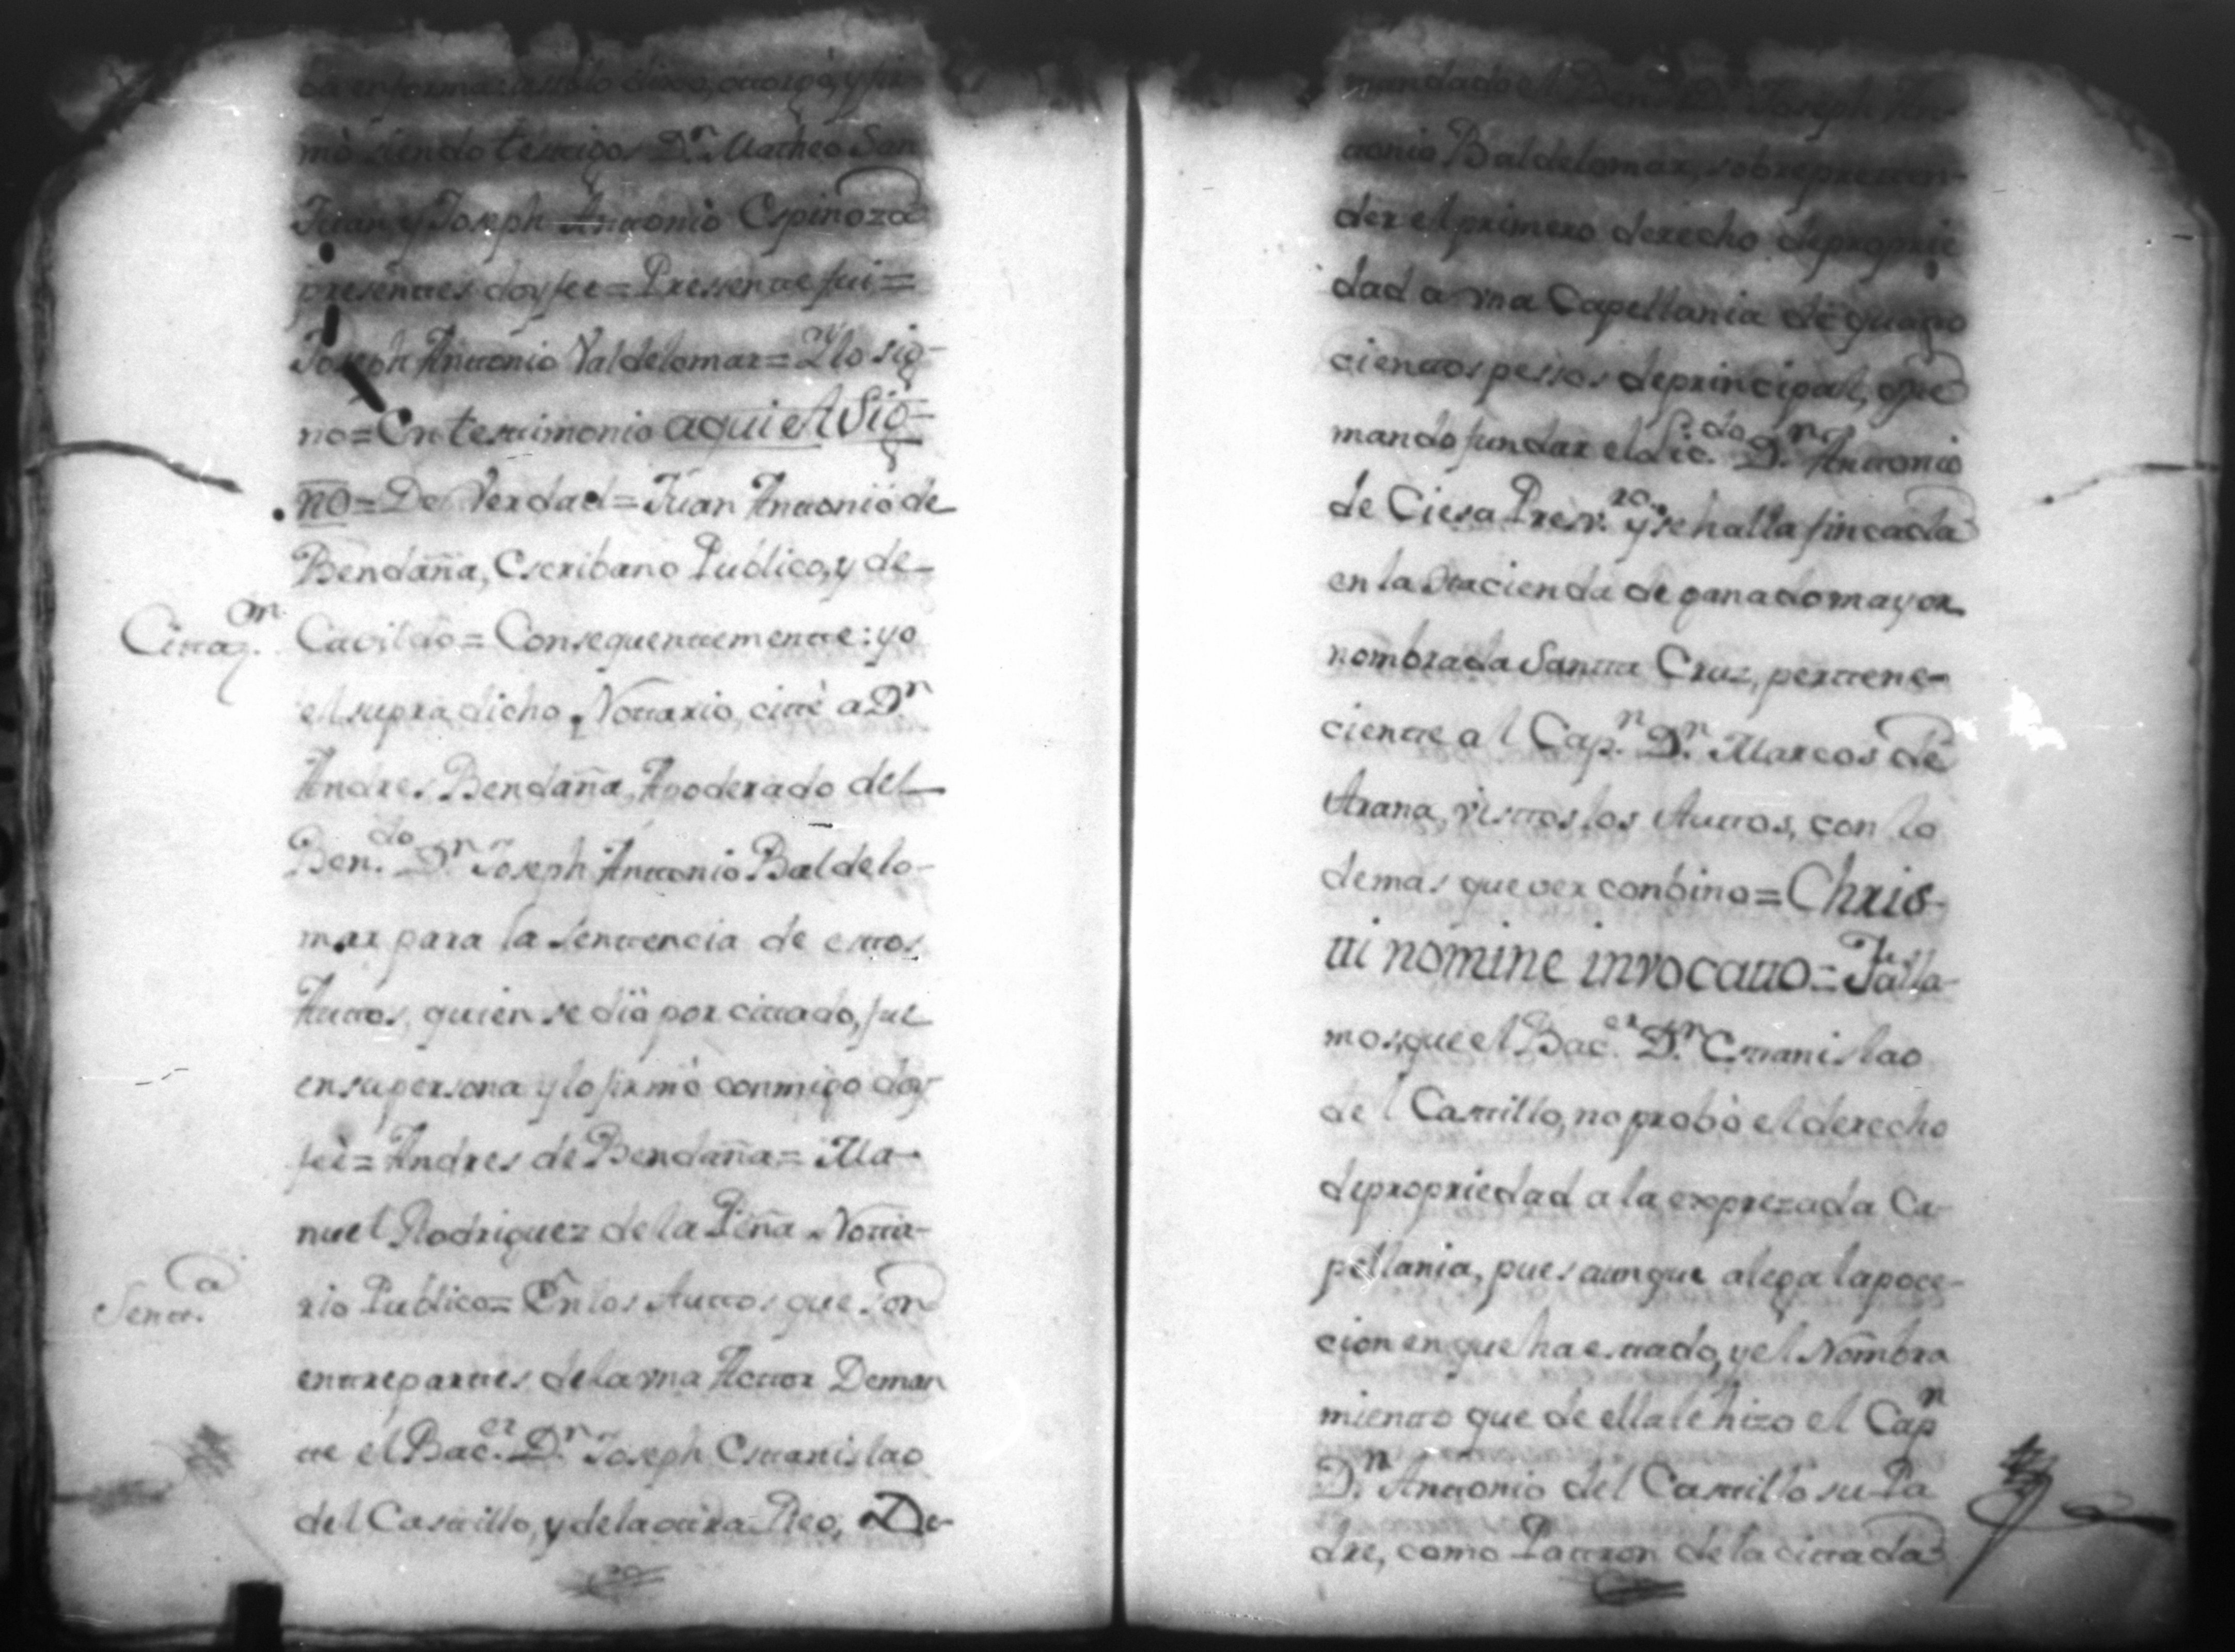 ba en forma: assi lo dixo, otorgó, y fir-
mò siendo testigos Dn. Matheo San
Juan y Joseph Anttonio Espinoza
presenttes doy fee = Pressentte fui =
Joseph Anttonio Valdelomar = Y lo sig-
no = En testtimonio aqui el Sig-
no = De Verdad = Juan Anttonio de
Bendaña, Escribano Publico, y de
Cavildo = Consequenttemente: yo
Cittaz.on
el supra dicho Nottario, citté a Dn
Andres Bendaña, Apoderado del
Ben.do Dn. Joseph Anttonio Baldelo-
mar para la senttencia de esttos
Auttos, quien se diò por cittado, fue
en su persona y lo firmò conmigo doy
feè = Andres de Bendaña = Ma-
nuel Rodriguez de la Piña Notta-
rio Publico = En los Auttos que son
Sentt.a
entre parttes de la una Acttor Deman
tte el Bac.er Dn. Joseph Esttanislao
del Casttillo, y de la ottra Reo, De-
mandado el Ben.do Dn. Joseph An-
ttonio Baldelomar, sobre pretten-
der el primero derecho de proprie
dad a una Capellania de quatro
cienttos pessos de principal, que
mando fundar el Lic.do Dn. Anttonio
de Ciesa Presv.ro y se halla fincada
en la Hacienda de ganado mayor
nombrada Santta Cruz, perttene-
cientte al Cap.n Dn. Marcos de
Arana, visttos los Auttos, con lo
demas que ver conbino = Chris-
tti nomine invocatto = Falla-
mos, que el Bac.er Dn. Esttanislao
del Casttillo, no probò el derecho
de propriedad a la exprezada Ca-
pellania, pues aunque alega la poce-
cion en que ha esttado, y el Nombra
mientto que de ella le hizo el Capn
Dn. Anttonio del Casttillo su Pa
dre, como Pattron de la cittada